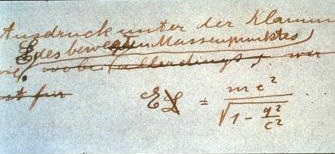 Ausdruck unter der Klamm
E des bewegten Massenpunktes
wobei allerdings
st für
E L = mc² / √(1 - q²/c²)